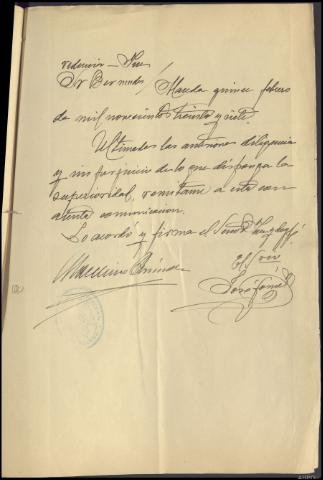 redencion
Sr Bermudez / Maceda quince febrero
de mil novecientos treinta y siete.
Ultimadas las anteriores diligencias
y sin perjuicio de lo que disponga la
superioridad, remitase a este con
atenta comunicacion.
Lo acordó y firma el Señor Juez doy fé
El Srio
José